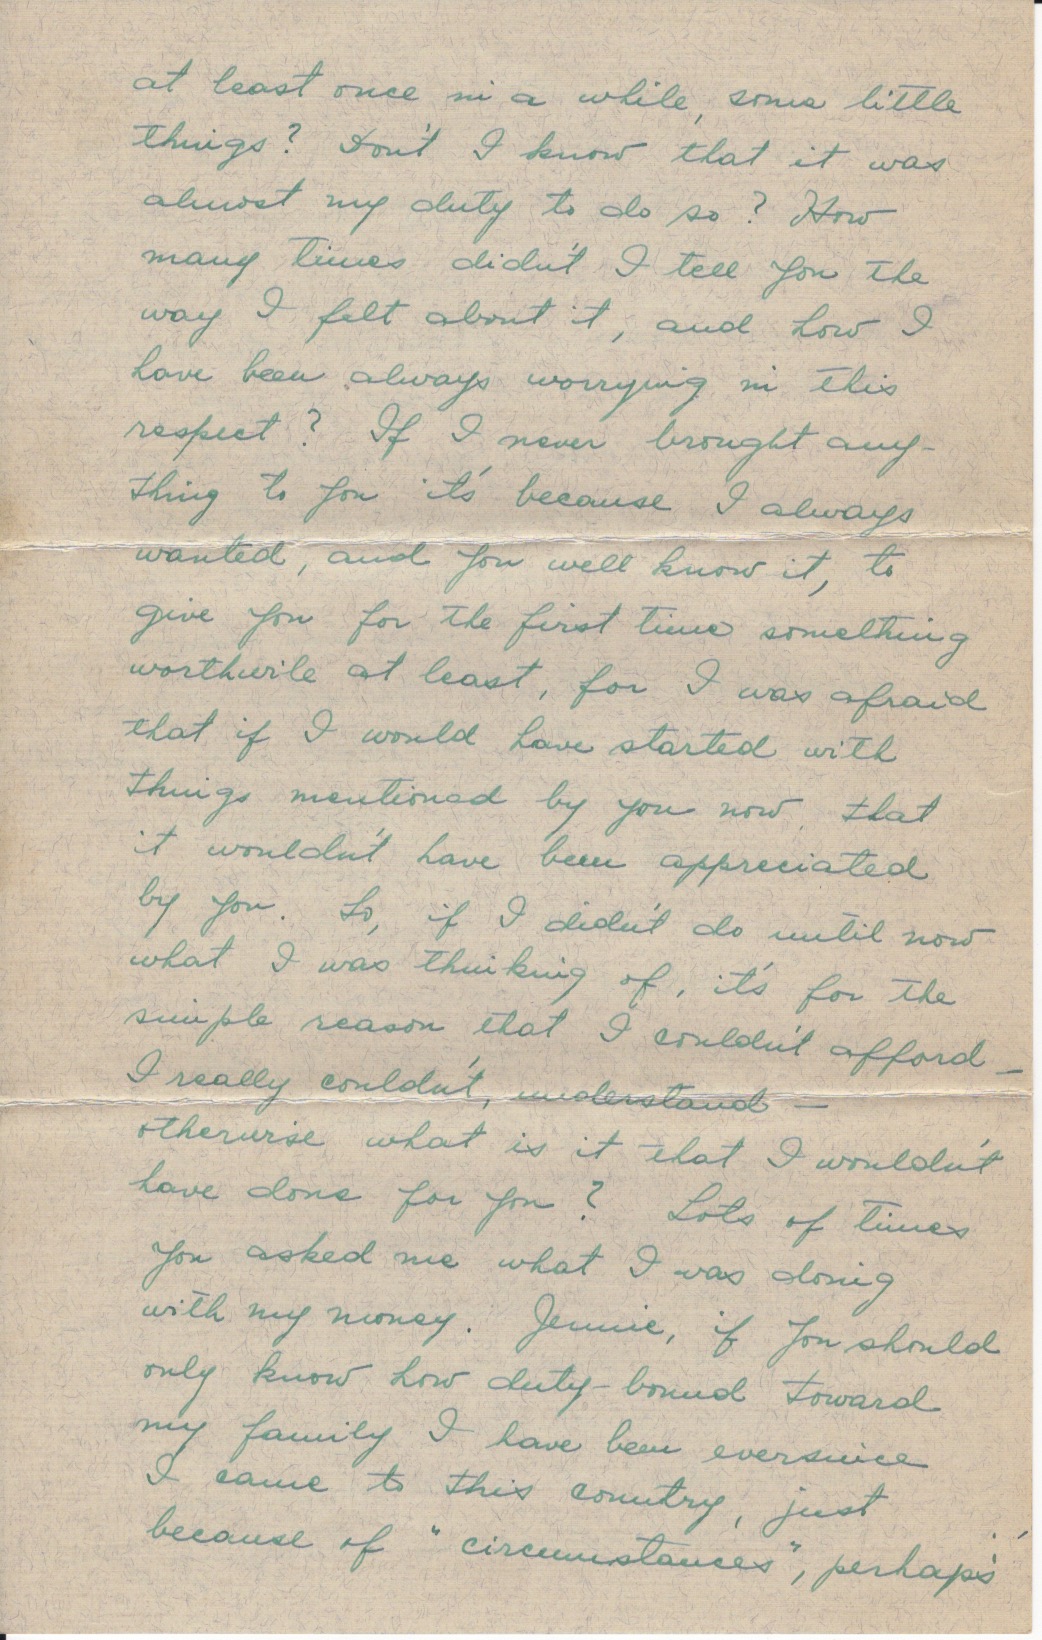 at least once in a while, some little
things? Don't I know that it was
almost my duty to do so? How
many times didn't I tell you the
way I felt about it, and how I
have been always worrying in this
respect? If I never brought any-
thing to you it's because I always
wanted, and you well know it, to
give you for the first time something
worthwile at least, for I was afraid
that if I would have started with
things mentioned by you now, that
it wouldn't have been appreciated
by you. So, if I didn't do until now
what I was thinking of, it's for the
simple reason that I couldn't afford –
I really couldn't, understand –
otherwise what is it that I wouldn't
have done for you? Lots of times
you asked me what I was doing
with my money. Jennie, if you should
only know how duty-bound toward
my family I have been eversince
I came to this country, just
because of "circumstances", perhaps